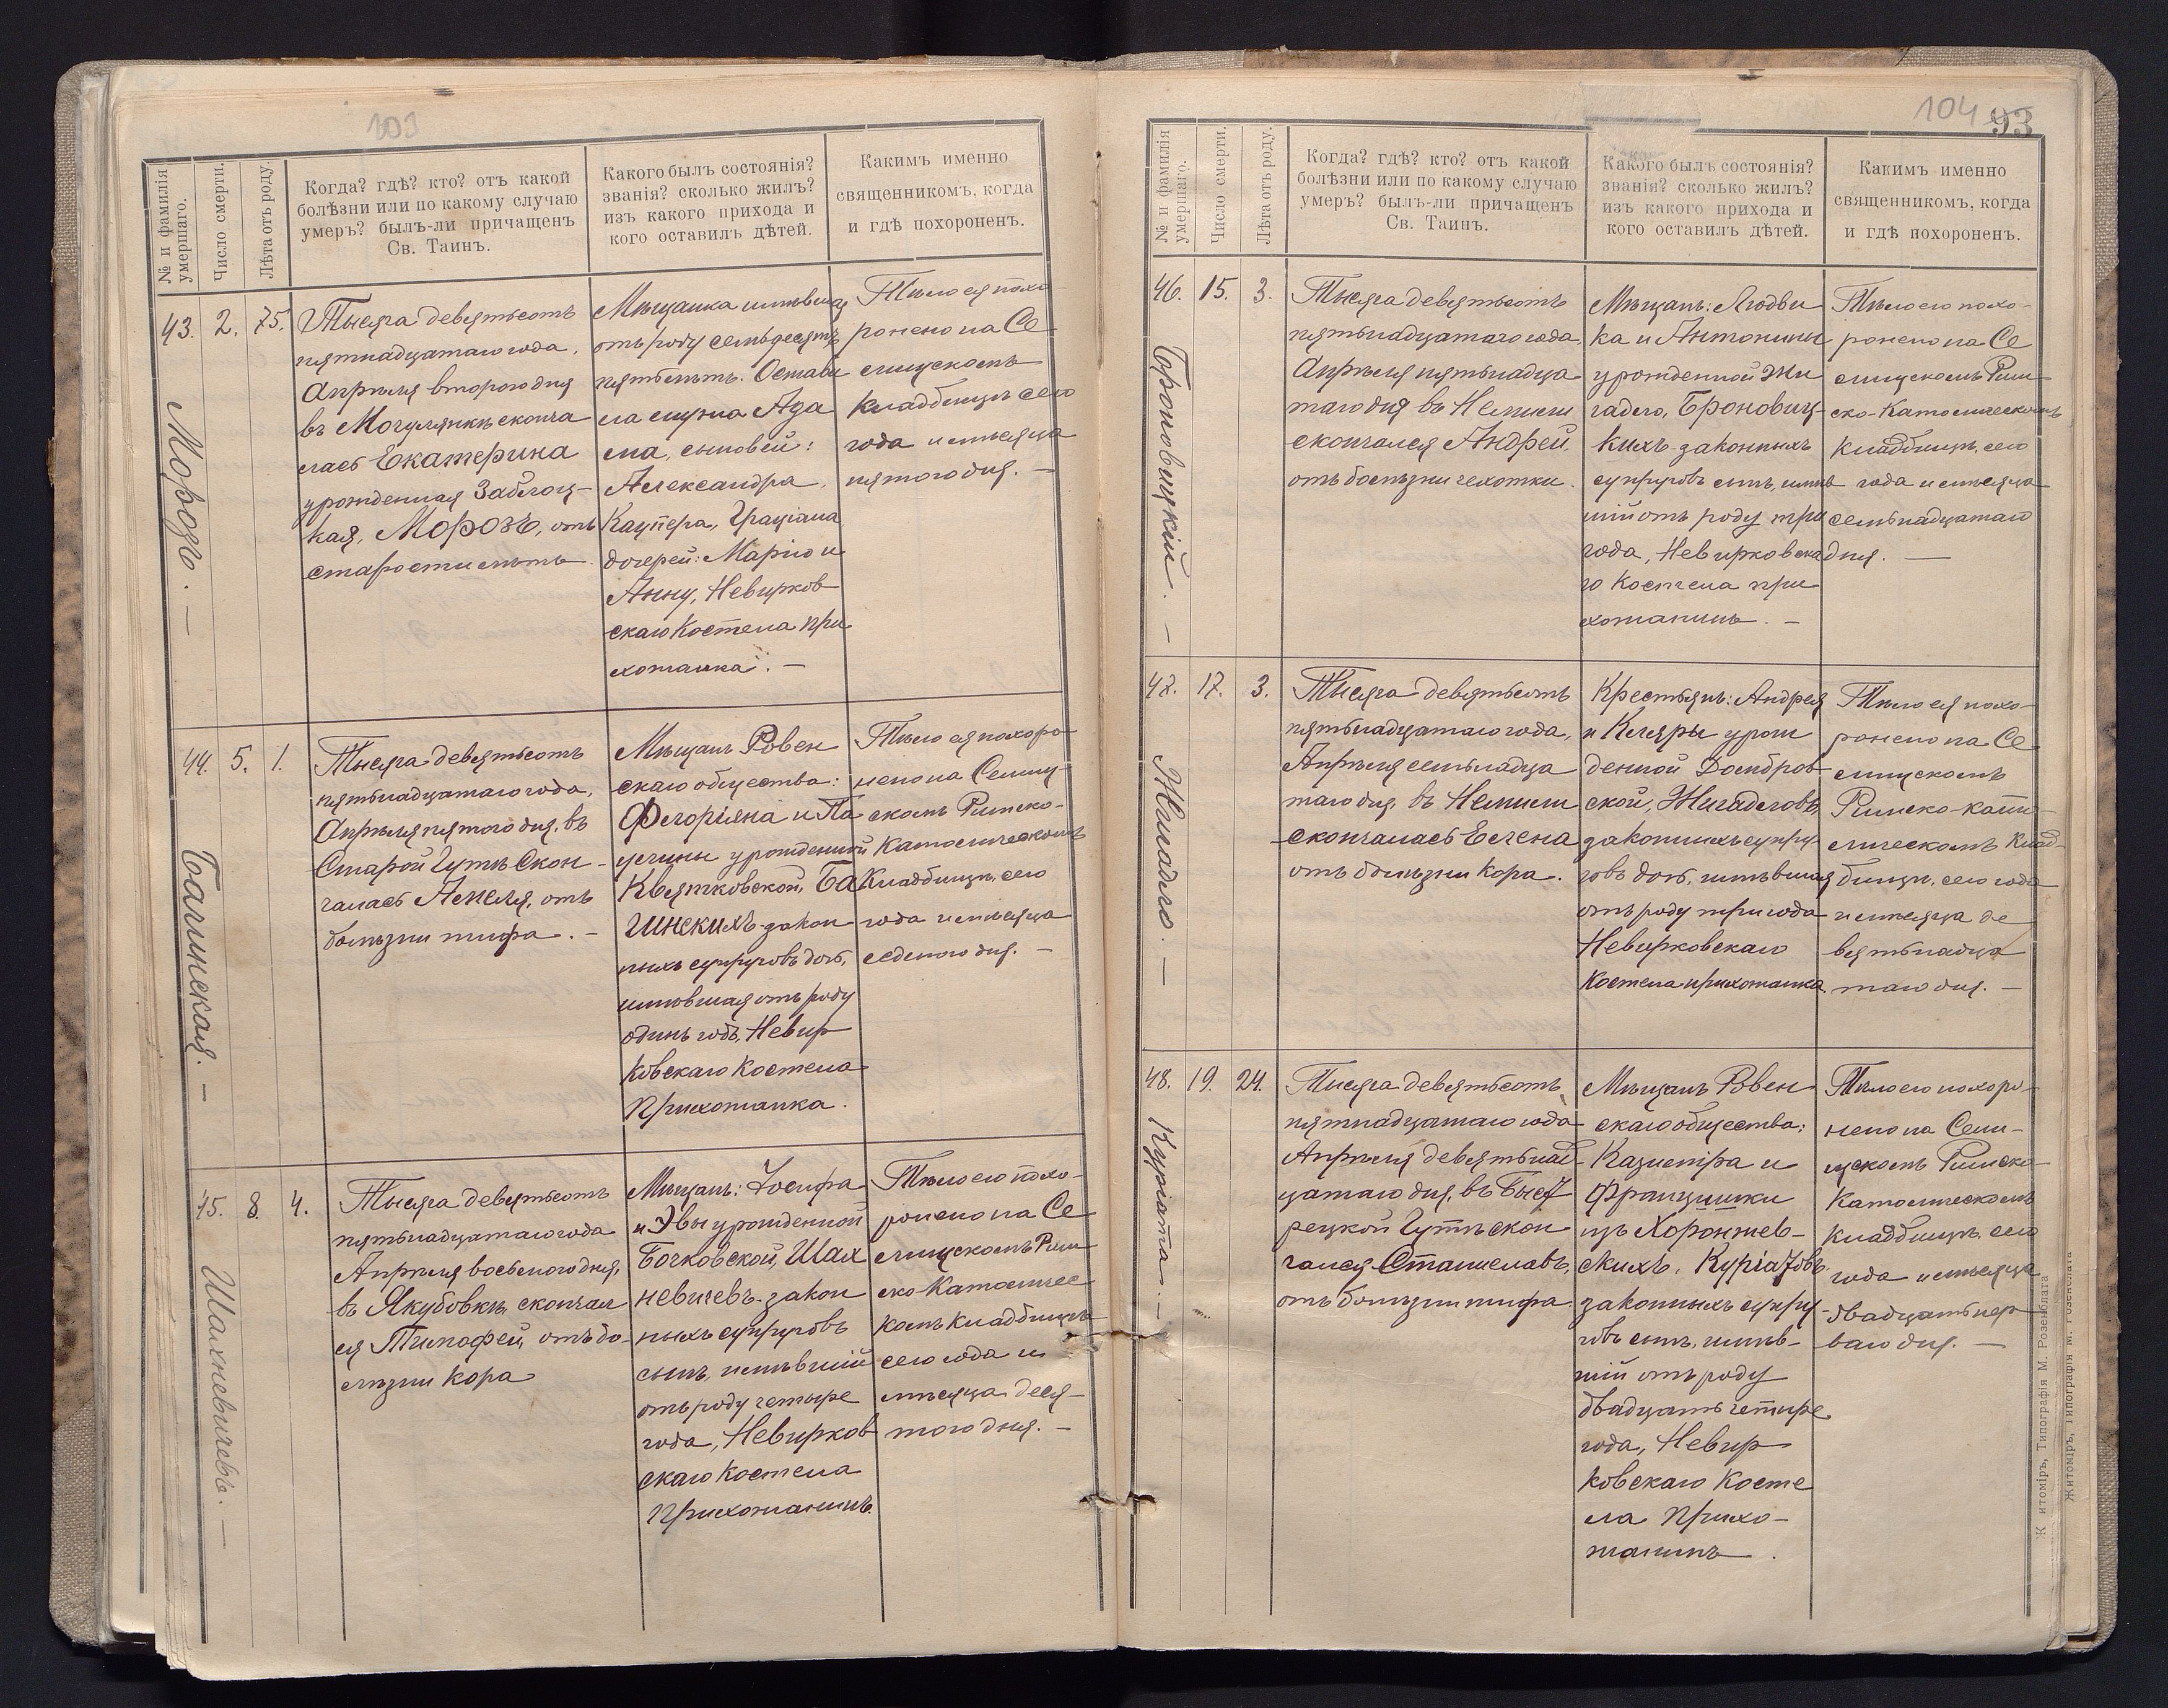 103
№ и фамилія
умершаго.
Число смерти.
Лѣта отъ роду.
Когда? гдѣ? кто? отъ какой
болѣзни или по какому случаю
умеръ? былъ-ли причащенъ
Св. Таинъ.
Какого былъ состоянія?
званія? сколько жилъ?
изъ какого прихода и
кого оставилъ дѣтей.
Какимъ именно
священникомъ, когда
и гдѣ похороненъ.
43.
Морозъ. —
2.
75.
Тысяча девятьсотъ
пятнадцатаго года,
Апрѣля второго дня
въ Могулянкѣ сконча
лась Екатерина
урожденная Заблоц-
кая, Морозъ, отъ
старости лѣтъ.
Мѣщанка имѣвшая
отъ роду семьдесятъ
пять лѣтъ. Остави
ла мужа Ада
ма, сыновей:
Александра,
Каспера, Граціана
дочерей: Марію и
Анну, Невирков
скаго Костела при
хожанка. —
Тѣло ея похо
ронено на Се
лищскомъ
кладбищѣ сего
года и мѣсяца
пятого дня. —
44.
Багинская. —
5.
1.
Тысяча девятьсотъ
пятьнадцатаго года,
Апрѣля пятого дня, въ
Старой Гутѣ скон-
чалась Анеля, отъ
болѣзни тифа. —
Мѣщанъ Ровен
скаго общества:
Флоріяна и Па
улины урожденной
Квятковской, Ба
гинскихъ закон
ныхъ супруговъ дочь,
имѣвшая отъ роду
одинъ годъ, Невир
ковскаго Костела
Прихожанка.
Тѣло ея похоро
нено на Селищ-
скомъ Римско-
Католическомъ
Кладбищѣ, сего
года и мѣсяца
седьмого дня. —
45.
Шахневичевъ. —
8.
4.
Тысяча девятьсотъ
пятьнадцатаго года
Апрѣля восьмого дня,
въ Якубовкѣ скончал
ся Тимофей, отъ бо-
лѣзни кора
Мѣщанъ: Іосифа
и Эвы урожденной
Бочковской, Шах
невичевъ закон
ныхъ супруговъ
сынъ, имѣвшій
отъ роду четыре
года, Невирков
скаго Костела
Прихожанинъ.
Тѣло его похо-
ронено на Се
лищскомъ Рим
ско Католичес
комъ кладбищѣ
сего года и
мѣсяца деся-
того дня. —
104
93
№ и фамилія
умершаго.
Число смерти.
Лѣта отъ роду.
Когда? гдѣ? кто? отъ какой
болѣзни или по какому случаю
умеръ? былъ-ли причащенъ
Св. Таинъ.
Какого былъ состоянія?
званія? сколько жилъ?
изъ какого прихода и
кого оставилъ дѣтей.
Какимъ именно
священникомъ, когда
и гдѣ похороненъ.
46.
Броновицкій. —
15.
3.
Тысяча девятьсотъ
пятьнадцатаго года,
Апрѣля пятьнадца
таго дня въ Немили
скончался Андрей,
отъ болѣзни чехотки.
Мѣщанъ: Людви
ка и Антонины
урожденной Жи
гадло, Броновиц-
кихъ законныхъ
супруговъ сынъ, имѣв
шій отъ роду три
года, Невирковска
го Костела при
хожанинъ. —
Тѣло его похо-
ронено на Се
лищскомъ Рим
ско-Католическомъ
кладбищѣ, сего
года и мѣсяца
семьнадцатаго
дня. —
47.
Жигадло. —
17.
3.
Тысяча девятьсотъ
пятьнадцатаго года,
Апрѣля семьнадца
таго дня, въ Немили
скончалась Елена
отъ болѣзни кора.
Крестьянъ: Андрея
и Кляры урож
денной Домбров
ской, Жигадловъ,
законныхъ супру-
говъ дочь, имѣвшая
отъ роду три года
Невирковскаго
Костела прихожанка.
Тѣло ея похо-
ронено на Се
лищскомъ
Римско-като-
лическомъ клад-
бищѣ, сего года
и мѣсяца де
вятьнадца
таго дня. —
48.
Куріята. —
19.
24.
Тысяча девятьсотъ
пятнадцатаго года
Апрѣля девятьнад
цатаго дня, въ Быст
рецкой Гутѣ скон
чался Станиславъ,
отъ болѣзни тифа.
Мѣщанъ Ровен
скаго общества:
Казиміра и
Францишки
изъ Хоронжев-
скихъ, Куріятовъ
законныхъ супру-
говъ сынъ, имѣв-
шій отъ роду
двадцать четыре
года, Невир
ковскаго Косте
ла Прихо-
жанинъ.
Тѣло его похоро-
нено на Сели-
щскомъ Римско
Католическомъ
кладбищѣ, сего
года и мѣсяца
двадцать пер
ваго дня. —
Житоміръ, Типографія М. Розенблата
Житоміръ, Типографія М. Розенблата